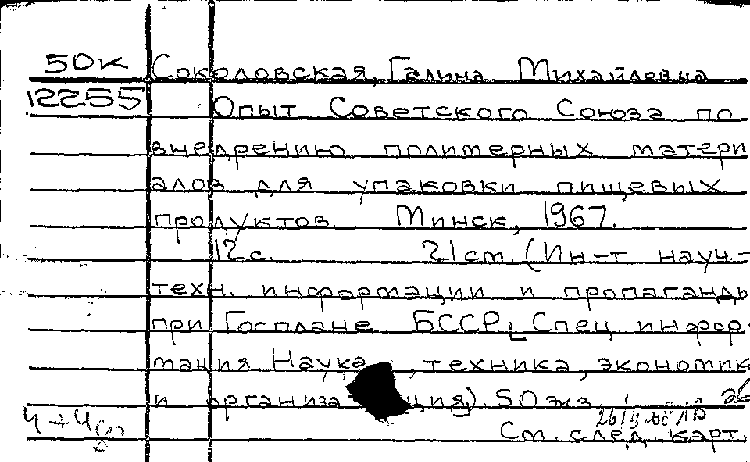 50к Соколовская, Галина Михайловна
12255 Опыт Советского Союза по
внедрению полимерных матери
алов для упаковки пищевых
продуктов Минск, 1967.
12 с. 21 см. (Ин-т науч.-
техн. информации и пропаганды
при Госплане БССР. Спец инфор-
мация Наука, техника, экономик
и организация). 50 экз. 26
См. след. карт.